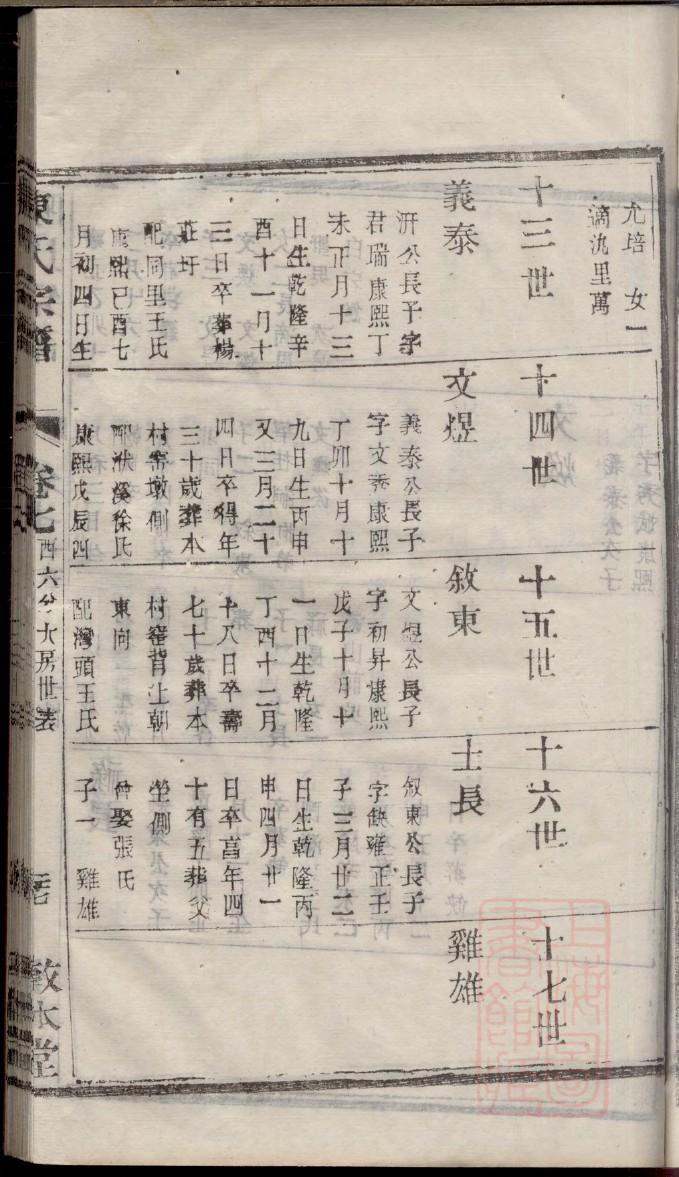 允培 女一
適氿里萬
十三世
義泰
汧公長子字
君瑞康熙丁
未正月十三
日生乾隆辛
酉十一月十
三日卒葬楊
莊圩
配同里王氏
康熙己酉七
月初四日生
十四世
文煜
義泰公長子
字文秀康熙
丁卯十月十
九日生丙申
又三月二十
四日卒得年
三十歲葬本
村窑墩側
配洑溪徐氏
康熙戊辰四
十五世
敘東
文煜公長子
字初昇康熙
戊子十月十
一日生乾隆
丁酉十二月
十八日卒壽
七十歲葬本
村窰背上朝
東向
配灣頭王氏
十六世
士長
叙東公長子
字缺雍正壬
子三月廿二
日生乾隆丙
申四月廿一
日卒享年四
十有五葬父
塋側
娶張氏
子一 雞雄
十七世
雞雄
陳氏宗譜
卷七
西六分大房世表
敦本堂
上海圖書館藏